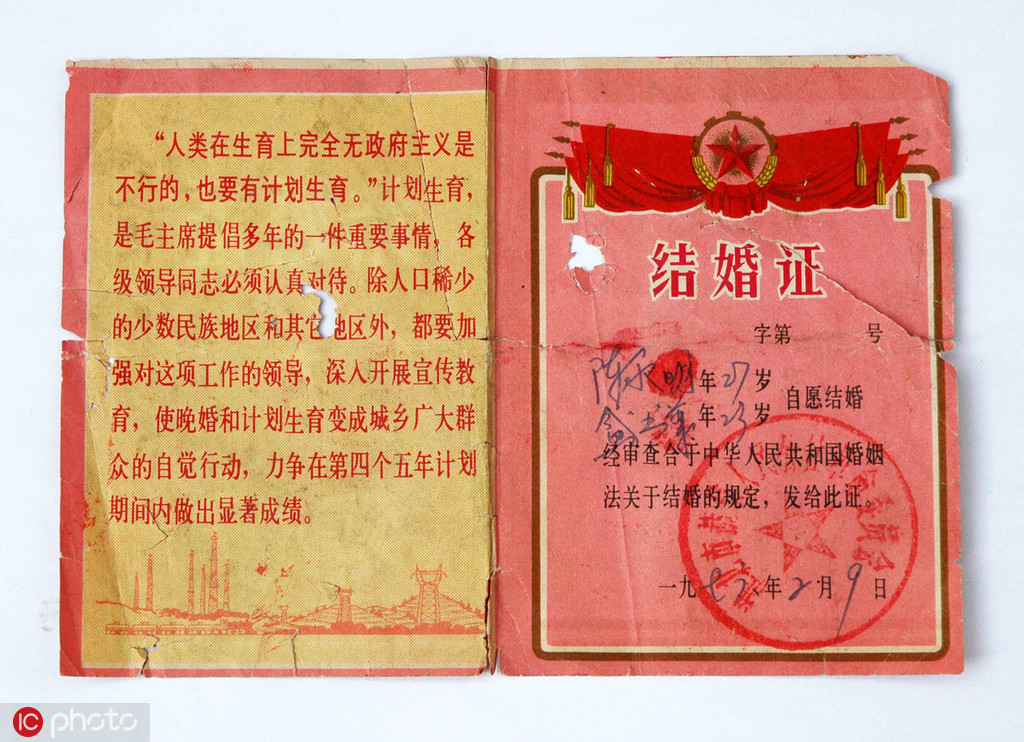 “人类在生育上完全无政府主义是
不行的，也要有计划生育。”计划生育，
是毛主席提倡多年的一件重要事情，各
级领导同志必须认真对待。除人口稀少
的少数民族地区和其它地区外，都要加
强对这项工作的领导，深入开展宣传教
育，使晚婚和计划生育变成城乡广大群
众的自觉行动，力争在第四个五年计划
期间内做出显著成绩。
结婚证
字第 号
陈 明 年27岁
年23岁
自愿结婚
经审查合于中华人民共和国婚姻
法关于结婚的规定，发给此证。
一九七 年2月9日
IC photo